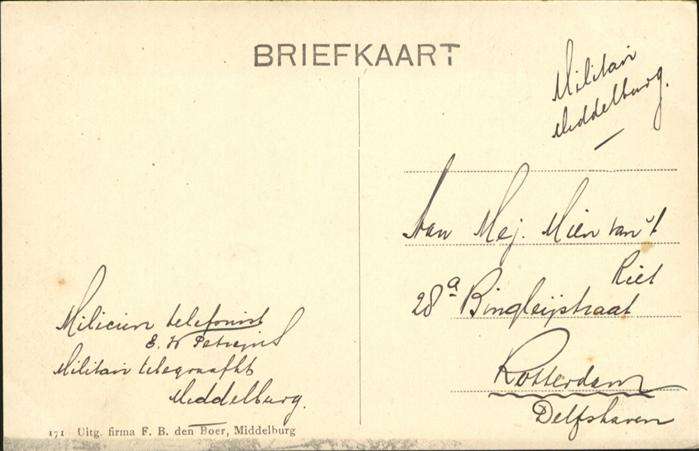 BRIEFKAART
Militair
Middelburg.
Aan Mej. Mien van 't
Riet
28a Bingleijstraat
Rotterdam
Delfshaven
Milicien telefonist
E. W
Militair telegraafkt
Middelburg.
171 Uitg. firma F. B. den Boer, Middelburg